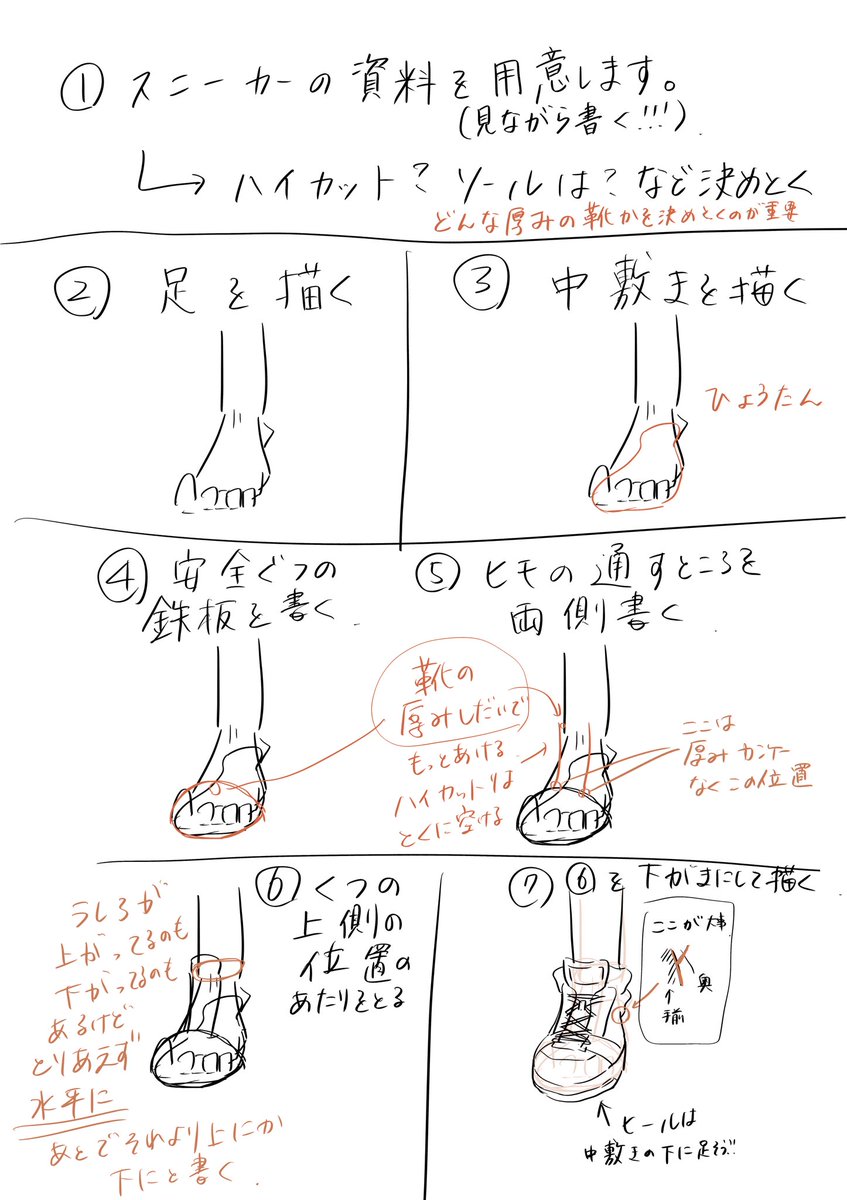 ① スニーカーの資料を用意します。
(見ながら書く!!!)
ハイカット? ソールは?など決めとく
どんな厚みの靴かを決めとくのが重要
② 足を描く
③ 中敷きを描く
ひょうたん
④ 安全ぐつの
鉄板を書く
⑤ ヒモの通すところを
両側書く
靴の
厚みしだいで
もっとあける
ハイカットりは
とくに空ける
ここは
厚みカンケー
なくこの位置
⑥ くつの
上側の
位置の
あたりをとる
うしろが
上がってるのも
下がってるのも
あるけど
とりあえず
水平に
あとでそれより上にか
下にと書く
⑦ ⑥を下がきにして描く
ここが大事
奥
手前
ヒールは
中敷きの下に足そう!!